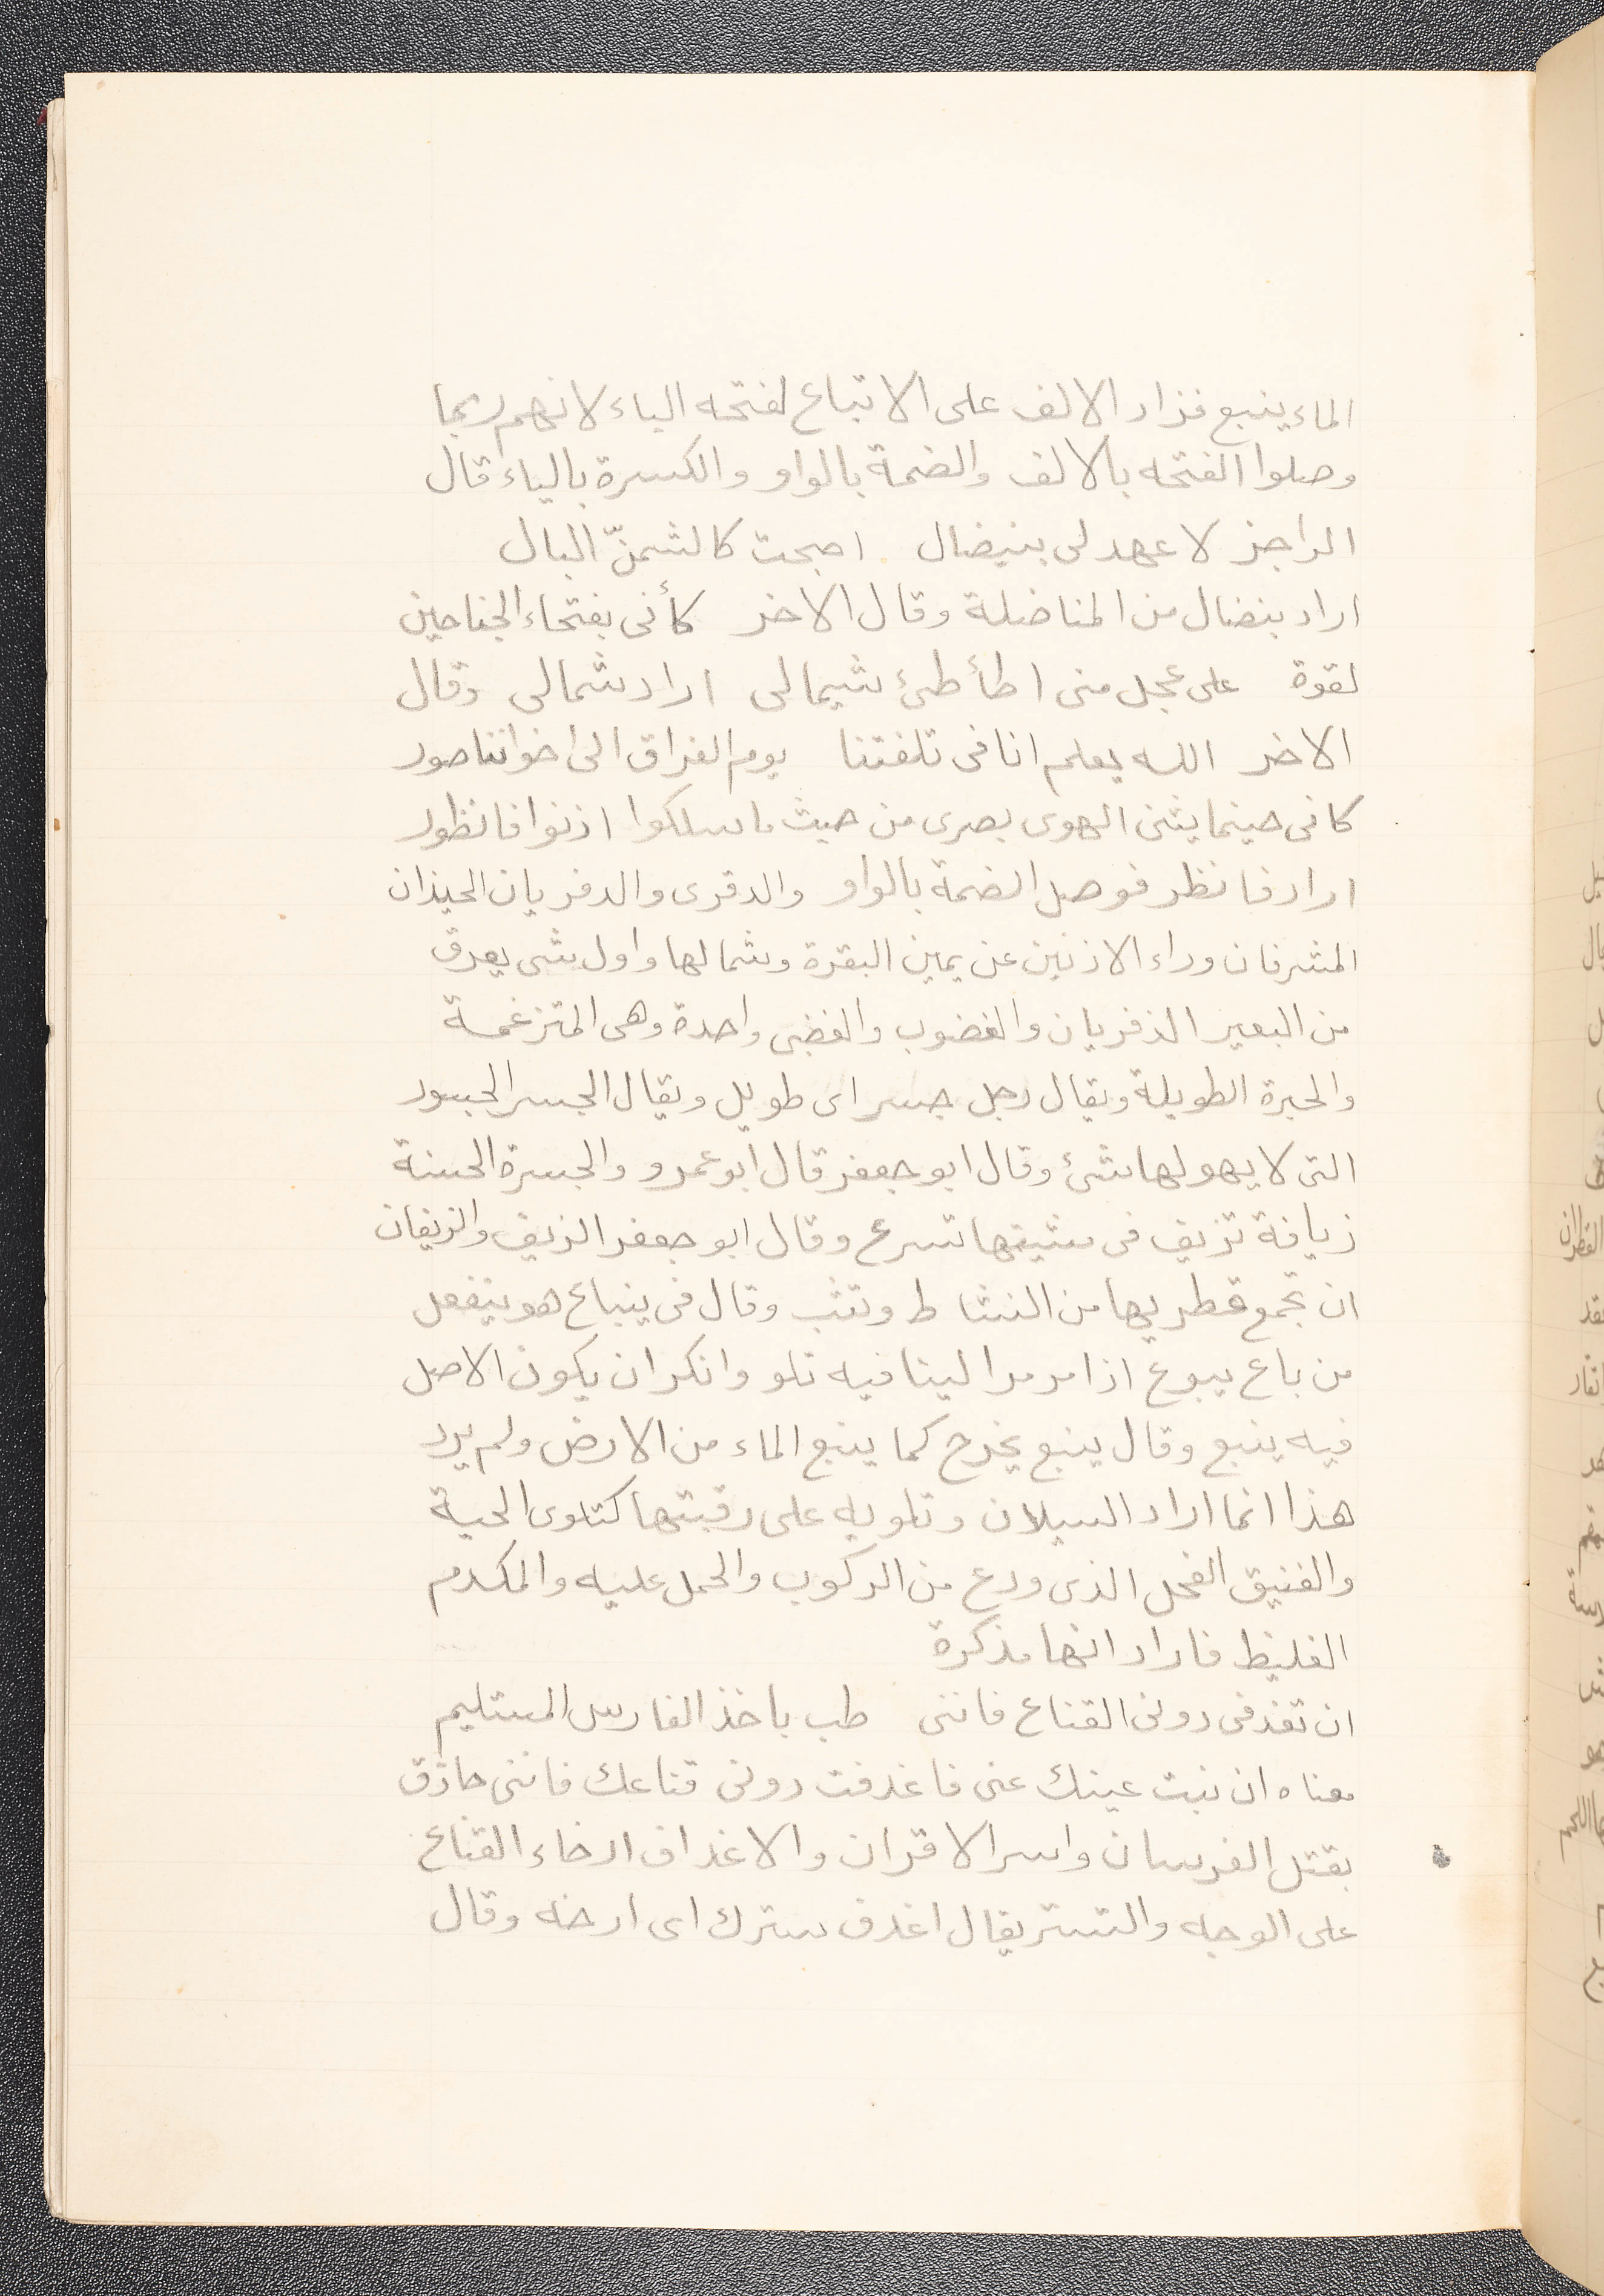 الماء ينبع فزاد الالف على الاتباع لفتحه الباء لانهم ربما
وصلوا الفتحه بالالف والضمة بالواو والكسرة بالياء قال
الراجز لا عهد لى بنيضال اصبحت كالشنّ البال
اراد بنضال من المناضلة وقال الاخر كأنى بفتخاء الجناحين
لقوة على عجل منى اطأطئ شيمالى اراد شمالى وقال
الاخر الله يعلم انا فى تلفتنا يوم الفراق الى اخواننا صور
كانى حينما يثنى الهوى بصرى من حيث ما سلكوا ادنوا فانظور
اراد فانظر فوصل الضمة بالواو والدفرى والدفريان الحيذان
المشرفان وراء الاذنين عن يمين البقرة وشمالها واول شى يعرق
من البعير الذفريان والغضوب والغضبى واحدة وهى المتزغمة
والجسرة الطويلة ويقال رجل جسر اى طويل ويقال الجسر الجسور
التى لا يهولها شئ وقال ابو جعفر قال ابو عمرو والجسرة الحسنة
زيافة تزيف فى مشيتها تسرع وقال ابو جعفر الزيف والزيفان
ان تجمع قطريها من النشاط وتثب وقال فى ينباع هو ينفعل
من باع يبوع اذا مر مرا لينا فيه تلو وانكر ان يكون الاصل
فيه ينبع وقال ينبع يخرج كما ينبع الماء من الارض ولم يرد
هذا انما اراد السيلان وتلويه على رقبتها كتلوى الحية
والفنيق الفحل الذى ودع من الركوب والحمل عليه والمكدم
الغليظ فاراد انها مذكرة
ان تغدفى دونى القناع فاننى طب باخذ الفارس المستليم
معناه ان نبت عينك عنى فاغدفت دونى قناعك فاننى حاذق
بقتل الفرسان واسر الاقران والاغداف ارخاء القناع
على الوجه والتستر يقال اغدف سترك اى ارخه وقال